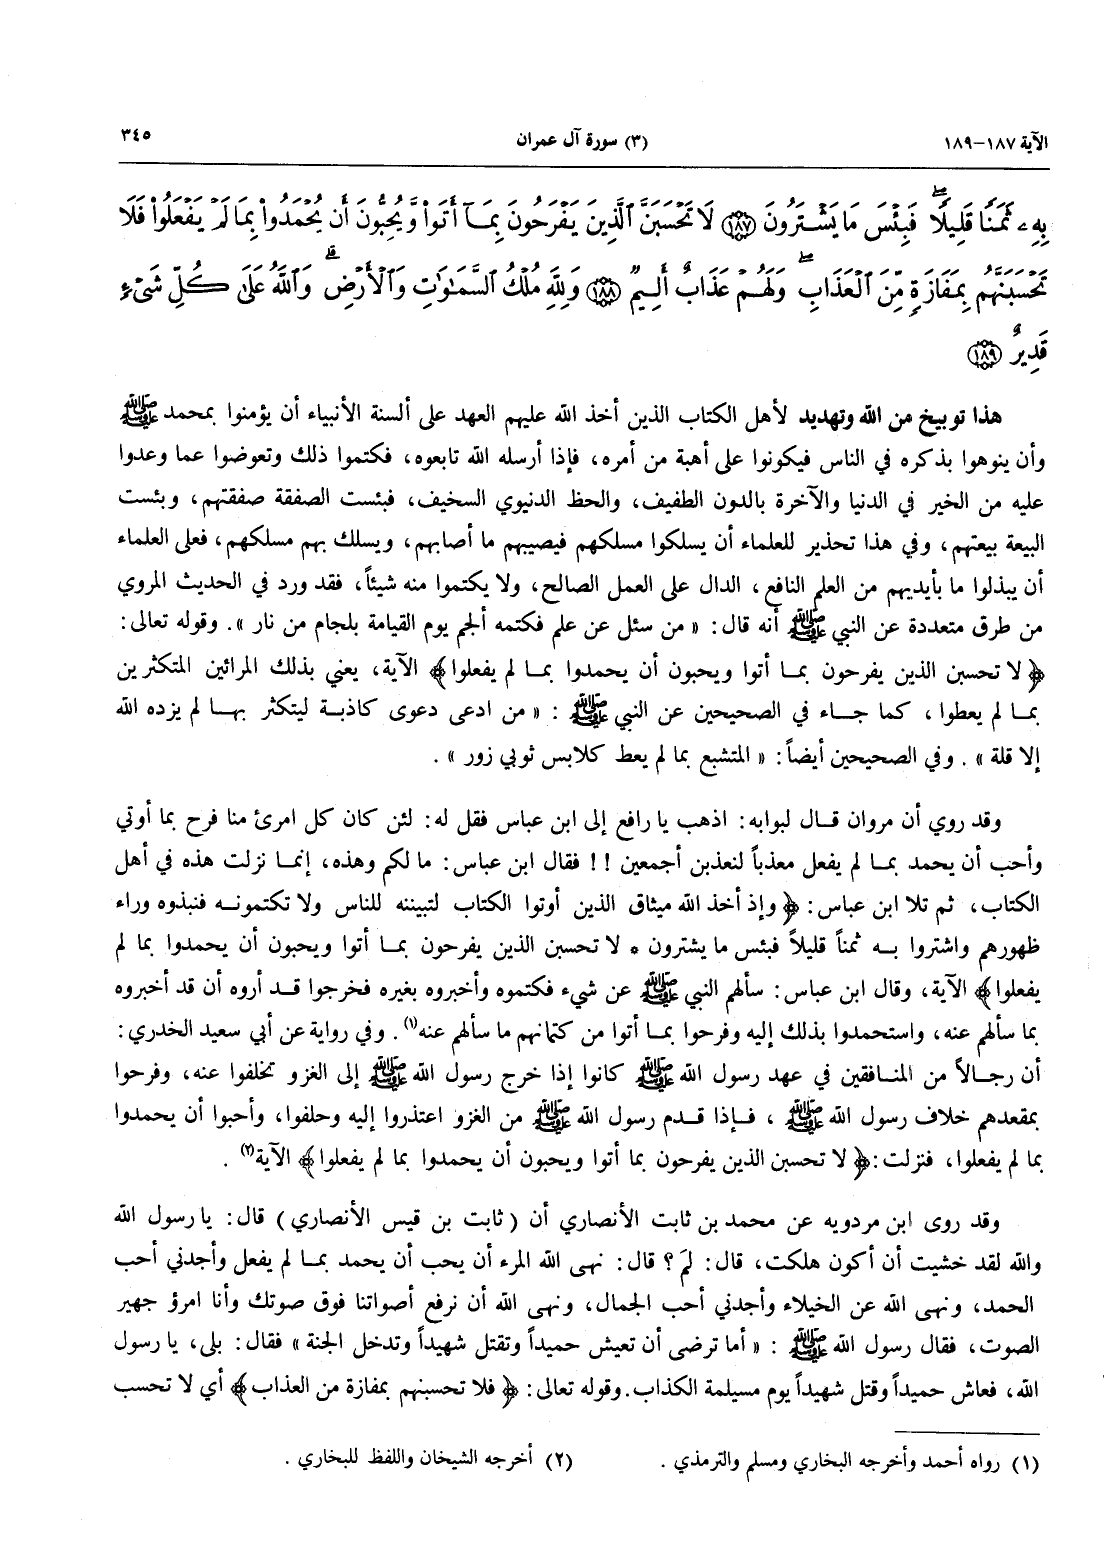 الآية ١٨٧-١٨٩ (٣) سورة آل عمران ٣٤٥
بِهِۦ ثَمَنًا قَلِيلًا ۖ فَبِئْسَ مَا يَشْتَرُونَ ﴿١٨٧﴾ لَا تَحْسَبَنَّ ٱلَّذِينَ يَفْرَحُونَ بِمَآ أَتَوا۟ وَّيُحِبُّونَ أَن يُحْمَدُوا۟ بِمَا لَمْ يَفْعَلُوا۟ فَلَا
تَحْسَبَنَّهُم بِمَفَازَةٍ مِّنَ ٱلْعَذَابِ ۖ وَلَهُمْ عَذَابٌ أَلِيمٌ ﴿١٨٨﴾ وَلِلَّهِ مُلْكُ ٱلسَّمَـٰوَٰتِ وَٱلْأَرْضِ ۗ وَٱللَّهُ عَلَىٰ كُلِّ شَىْءٍ
قَدِيرٌ ﴿١٨٩﴾
هذا توبيخ من الله وتهديد لأهل الكتاب الذين أخذ الله عليهم العهد على ألسنة الأنبياء أن يؤمنوا بمحمد ﷺ
وأن ينوهوا بذكره في الناس فيكونوا على أهبة من أمره، فإذا أرسله الله تابعوه، فكتموا ذلك وتعوضوا عما وعدوا
عليه من الخير في الدنيا والآخرة بالدون الطفيف، والحظ الدنيوي السخيف، فبئست الصفقة صفقتهم، وبئست
البيعة بيعتهم، وفي هذا تحذير للعلماء أن يسلكوا مسلكهم فيصيبهم ما أصابهم، ويسلك بهم مسلكهم، فعلى العلماء
أن يبذلوا ما بأيديهم من العلم النافع، الدال على العمل الصالح، ولا يكتموا منه شيئاً، فقد ورد في الحديث المروي
من طرق متعددة عن النبي ﷺ أنه قال: « من سئل عن علم فكتمه ألجم يوم القيامة بلجام من نار ». وقوله تعالى:
﴿ لا تحسبن الذين يفرحون بمـا أتوا ويحبون أن يحمدوا بمـا لم يفعلوا﴾ الآية، يعني بذلك المرائين المتكثرين
بمـا لم يعطوا، كما جـاء في الصحيحين عن النبي ﷺ : « من ادعى دعوى كاذبـة ليتكثر بهـا لم يزده الله
إلا قلة » . وفي الصحيحين أيضاً: « المتشبع بما لم يعط كلابس ثوبي زور » .
وقد روي أن مروان قـال لبوابه: اذهب يا رافع إلى ابن عباس فقل له: لئن كان كل امرئ منا فرح بما أوتي
وأحب أن يحمد بمـا لم يفعل معذباً لنعذبن أجمعين !! فقال ابن عباس: ما لكم وهذه، إنمـا نزلت هذه في أهل
الكتاب، ثم تلا ابن عباس: ﴿ وإذ أخذ الله ميثاق الذين أوتوا الكتاب لتبيننه للناس ولا تكتمونـه فنبذوه وراء
ظهورهم واشتروا بـه ثمناً قليلاً فبئس ما يشترون * لا تحسبن الذين يفرحون بمـا أتوا ويحبون أن يحمدوا بما لم
يفعلوا﴾ الآية، وقال ابن عباس: سألهم النبي ﷺ عن شيء فكتموه وأخبروه بغيره فخرجوا قـد أروه أن قد أخبروه
بما سألهم عنه، واستحمدوا بذلك إليه وفرحوا بمـا أتوا من كتمانهم ما سألهم عنه(١). وفي رواية عن أبي سعيد الخدري:
أن رجـالاً من المنـافقين في عهد رسول الله ﷺ كانوا إذا خرج رسول الله ﷺ إلى الغزو تخلفوا عنه، وفرحوا
بمقعدهم خلاف رسول الله ﷺ ، فـإذا قـدم رسول الله ﷺ من الغزو اعتذروا إليه وحلفوا، وأحبوا أن يحمدوا
بما لم يفعلوا، فنزلت: ﴿ لا تحسبن الذين يفرحون بما أتوا ويحبون أن يحمدوا بما لم يفعلوا﴾ الآية(٢) .
وقد روى ابن مردويه عن محمد بن ثابت الأنصاري أن ( ثابت بن قيس الأنصاري ) قال: يا رسول الله
والله لقد خشيت أن أكون هلكت، قال: لمَ ؟ قال: نهى الله المرء أن يحب أن يحمد بمـا لم يفعل وأجدني أحب
الحمد، ونهى الله عن الخيلاء وأجدني أحب الجمال، ونهى الله أن نرفع أصواتنا فوق صوتك وأنا امرؤ جهير
الصوت، فقال رسول الله ﷺ : « أما ترضى أن تعيش حميداً وتقتل شهيداً وتدخل الجنة » فقال: بلى، يا رسول
الله، فعاش حميداً وقتل شهيداً يوم مسيلمة الكذاب. وقوله تعالى: ﴿ فلا تحسبنهم بمفازة من العذاب﴾ أي لا تحسب
(١) رواه أحمد وأخرجه البخاري ومسلم والترمذي . (٢) أخرجه الشيخان واللفظ للبخاري .